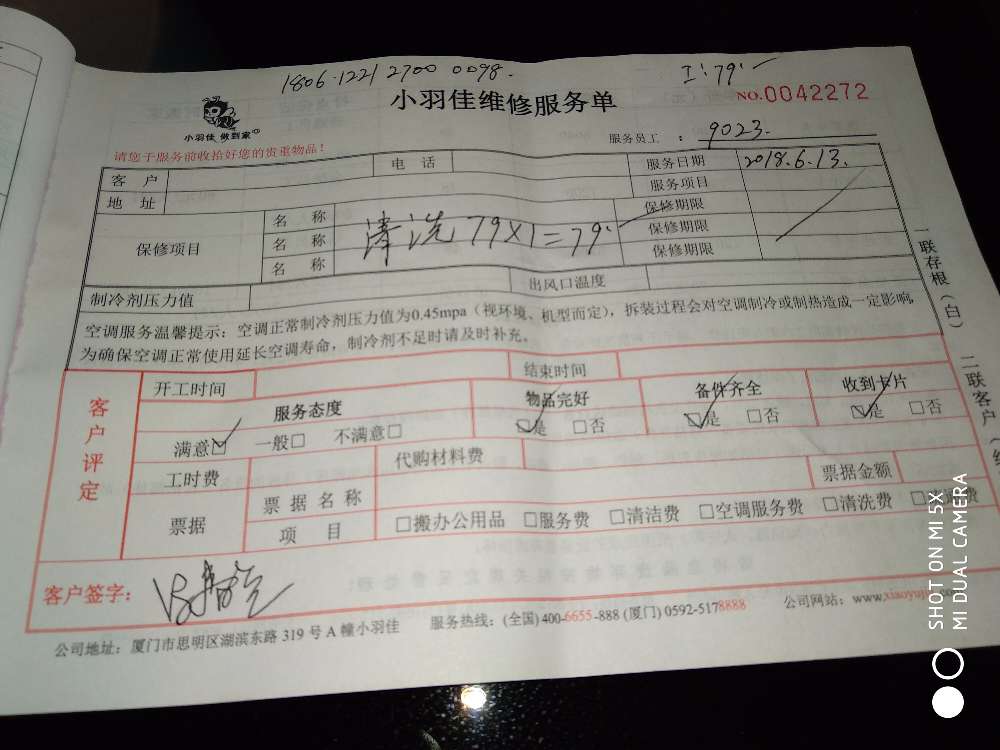 1806·1221 2700 0098.
I:79.
小羽佳 做到家
小羽佳维修服务单
NO.0042272
请您于服务前收拾好您的贵重物品！
服务员工 ： 9023.
客 户 电 话 服务日期 2018.6.13.
地 址 服务项目
保修项目 名 称 保修期限
名 称 清洗 79×1=79. 保修期限
名 称 保修期限
制冷剂压力值 出风口温度
空调服务温馨提示：空调正常制冷剂压力值为0.45mpa（视环境、机型而定），拆装过程会对空调制冷或制热造成一定影响,
为确保空调正常使用延长空调寿命，制冷剂不足时请及时补充。
客户评定
开工时间 结束时间
服务态度 物品完好 备件齐全 收到卡片
满意☑ 一般□ 不满意□ ☑是 □否 ☑是 □否 ☑是 □否
工时费 代购材料费
票据 票据名称 票据金额
项 目 □搬办公用品 □服务费 □清洁费 □空调服务费 □清洗费
客户签字：
公司地址：厦门市思明区湖滨东路 319 号 A 幢小羽佳 服务热线：(全国) 400-6655-888 (厦门) 0592-5178888 公司网站：www.xiaoyujia
一联存根（白） 二联客户
SHOT ON MI 5X
MI DUAL CAMERA